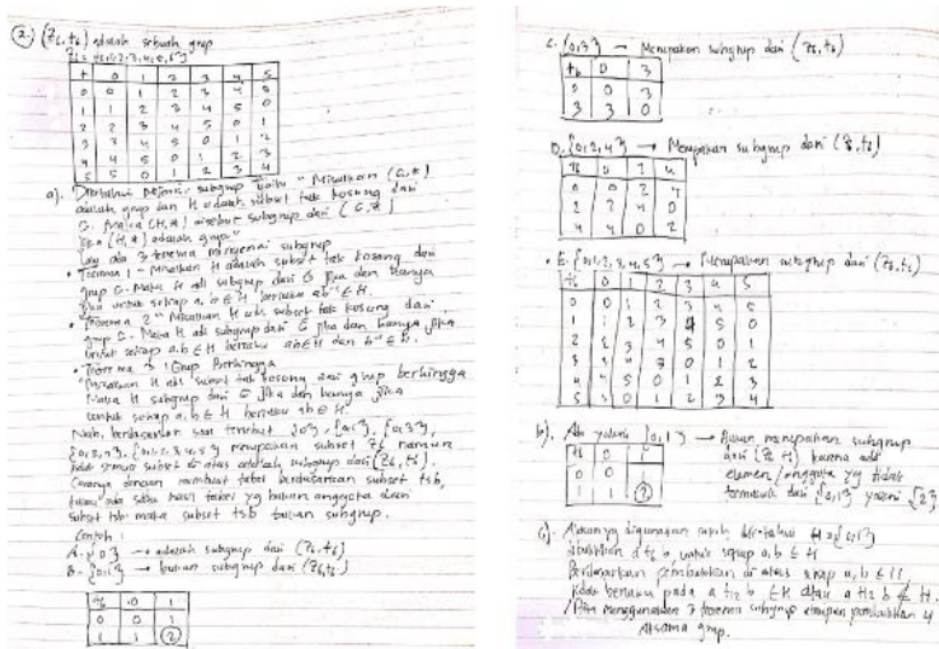 2. (Z6, +6) adalah sebuah grup
Z6 = {0,1,2,3,4,5}
+ 0 1 2 3 4 5
0 0 1 2 3 4 5
1 1 2 3 4 5 0
2 2 3 4 5 0 1
3 3 4 5 0 1 2
4 4 5 0 1 2 3
5 5 0 1 2 3 4
a). subgrup yaitu "Misalkan (G,*)
adalah grup dan H adalah subset tak kosong dari
G. Maka (H,*) disebut subgrup dari (G,*)
jika (H,*) adalah grup"
ada 3 teorema mengenai subgrup
• Teorema 1 "Misalkan H adalah subset tak kosong dari
grup G. Maka H adl subgrup dari G jika dan hanya
jika untuk setiap a, b ∈ H berlaku ab⁻¹ ∈ H.
• Teorema 2 "Misalkan H adl. subset tak kosong dari
grup G. Maka H adl subgrup dari G jika dan hanya jika
untuk setiap a,b ∈ H berlaku ab ∈ H dan b⁻¹ ∈ H.
• Teorema 3 (Grup Berhingga
"Misalkan H adl subset tak kosong dari grup berhingga
Maka H subgrup dari G jika dan hanya jika
untuk setiap a,b ∈ H berlaku ab ∈ H.
Nah, berdasarkan soal tersebut {0}, {0,1}, {0,3},
{0,2,4}, {0,1,2,3,4,5} merupakan subset Z6 namun
tidak semua subset di atas adalah subgrup dari (Z6,+6).
Caranya dengan membuat tabel berdasarkan subset tsb,
ada hasil tabel yg bukan anggota dari
subset tsb maka subset tsb bukan subgrup.
Contoh :
A. {0} → adalah subgrup dari (Z6,+6)
B. {0,1} → bukan subgrup dari (Z6,+6)
+6 0 1
0 0 1
1 1 2
C. {0,3} → Merupakan subgrup dari (Z6,+6)
+6 0 3
0 0 3
3 3 0
D. {0,2,4} → Merupakan subgrup dari (Z6,+6)
+6 0 2 4
0 0 2 4
2 2 4 0
4 4 0 2
E. {0,1,2,3,4,5} → Merupakan subgrup dari (Z6,+6)
+6 0 1 2 3 4 5
0 0 1 2 3 4 5
1 1 2 3 4 5 0
2 2 3 4 5 0 1
3 3 4 5 0 1 2
4 4 5 0 1 2 3
5 5 0 1 2 3 4
b). Ada yakni {0,1} → Bukan merupakan subgrup
dari (Z6 +6) karena ada
elemen/anggota yg tidak
termasuk dari {0,1} yakni {2}
+6 0 1
0 0
1 1 2
c). yg digunakan H={0,1}
dibuktikan a +6 b, untuk setiap a,b ∈ H
Berdasarkan pembuktian di atas setiap a,b ∈ H,
tidak berlaku pada a +12 b ∈ H atau a +12 b ∉ H.
menggunakan 3 teorema subgrup ataupun pembuktian 4
aksioma grup.